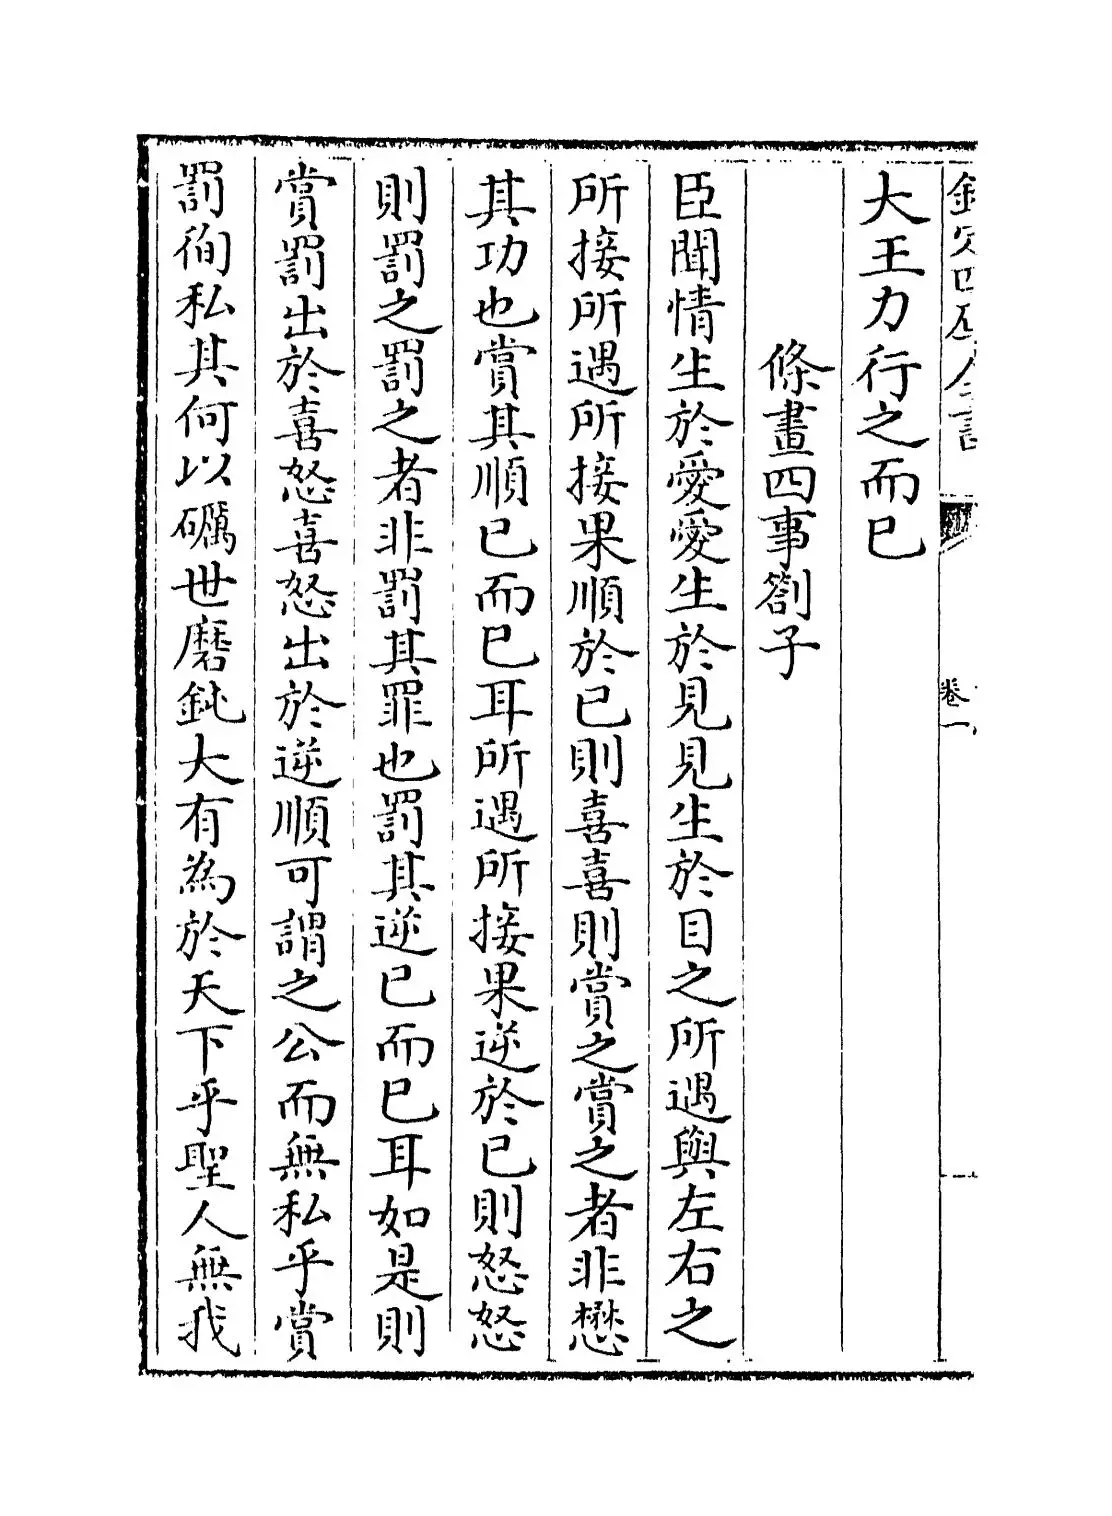 欽定四庫全書
卷一
大王力行之而已
條畫四事劄子
臣聞情生於愛愛生於見見生於目之所遇與左右之
所接所遇所接果順於已則喜喜則賞之賞之者非懋
其功也賞其順已而已耳所遇所接果逆於已則怒怒
則罰之罰之者非罰其罪也罰其逆已而已耳如是則
賞罰出於喜怒喜怒出於逆順可謂之公而無私乎賞
罰徇私其何以礪世磨鈍大有為於天下乎聖人無我